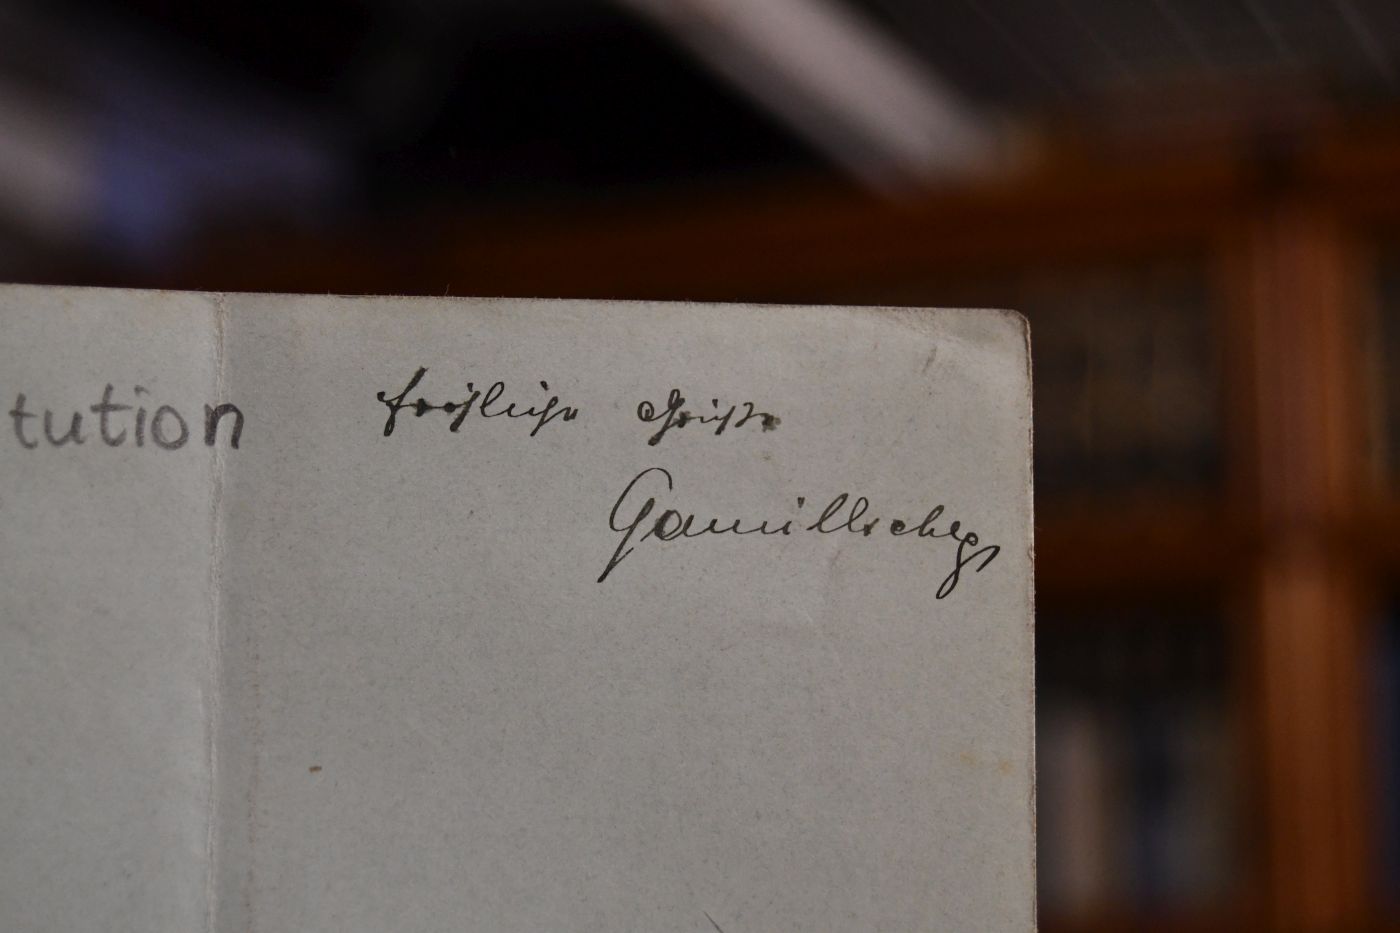 tution
fröhliche Grüße
Gamillscheg